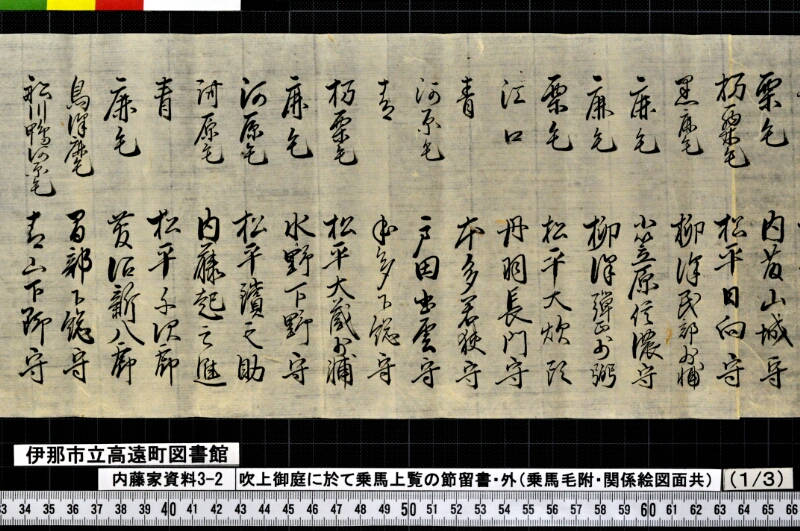 栗毛 内藤山城守
朽栗毛 松平日向守
黒鹿毛 柳澤民部少輔
鹿毛 小笠原信濃守
鹿毛 柳澤弾正少弼
栗毛 松平大炊頭
江口 丹羽長門守
青 本多若狭守
河原毛 戸田出雲守
青 本多下総守
朽栗毛 松平大蔵少輔
鹿毛 水野下野守
河原毛 松平讃之助
河原毛 内藤起之進
青 松平 郎
鹿毛 菅沼新八郎
烏渡鹿毛 阿部下総守
鴨河原毛 青山下野守
伊那市立高遠町図書館
内藤家資料3-2 吹上御庭に於て乗馬上覧の節留書・外(乗馬毛附・関係絵図面共) (1/3)
33 34 35 36 37 38 39 40 41 42 43 44 45 46 47 48 49 50 51 52 53 54 55 56 57 58 59 60 61 62 63 64 65 66